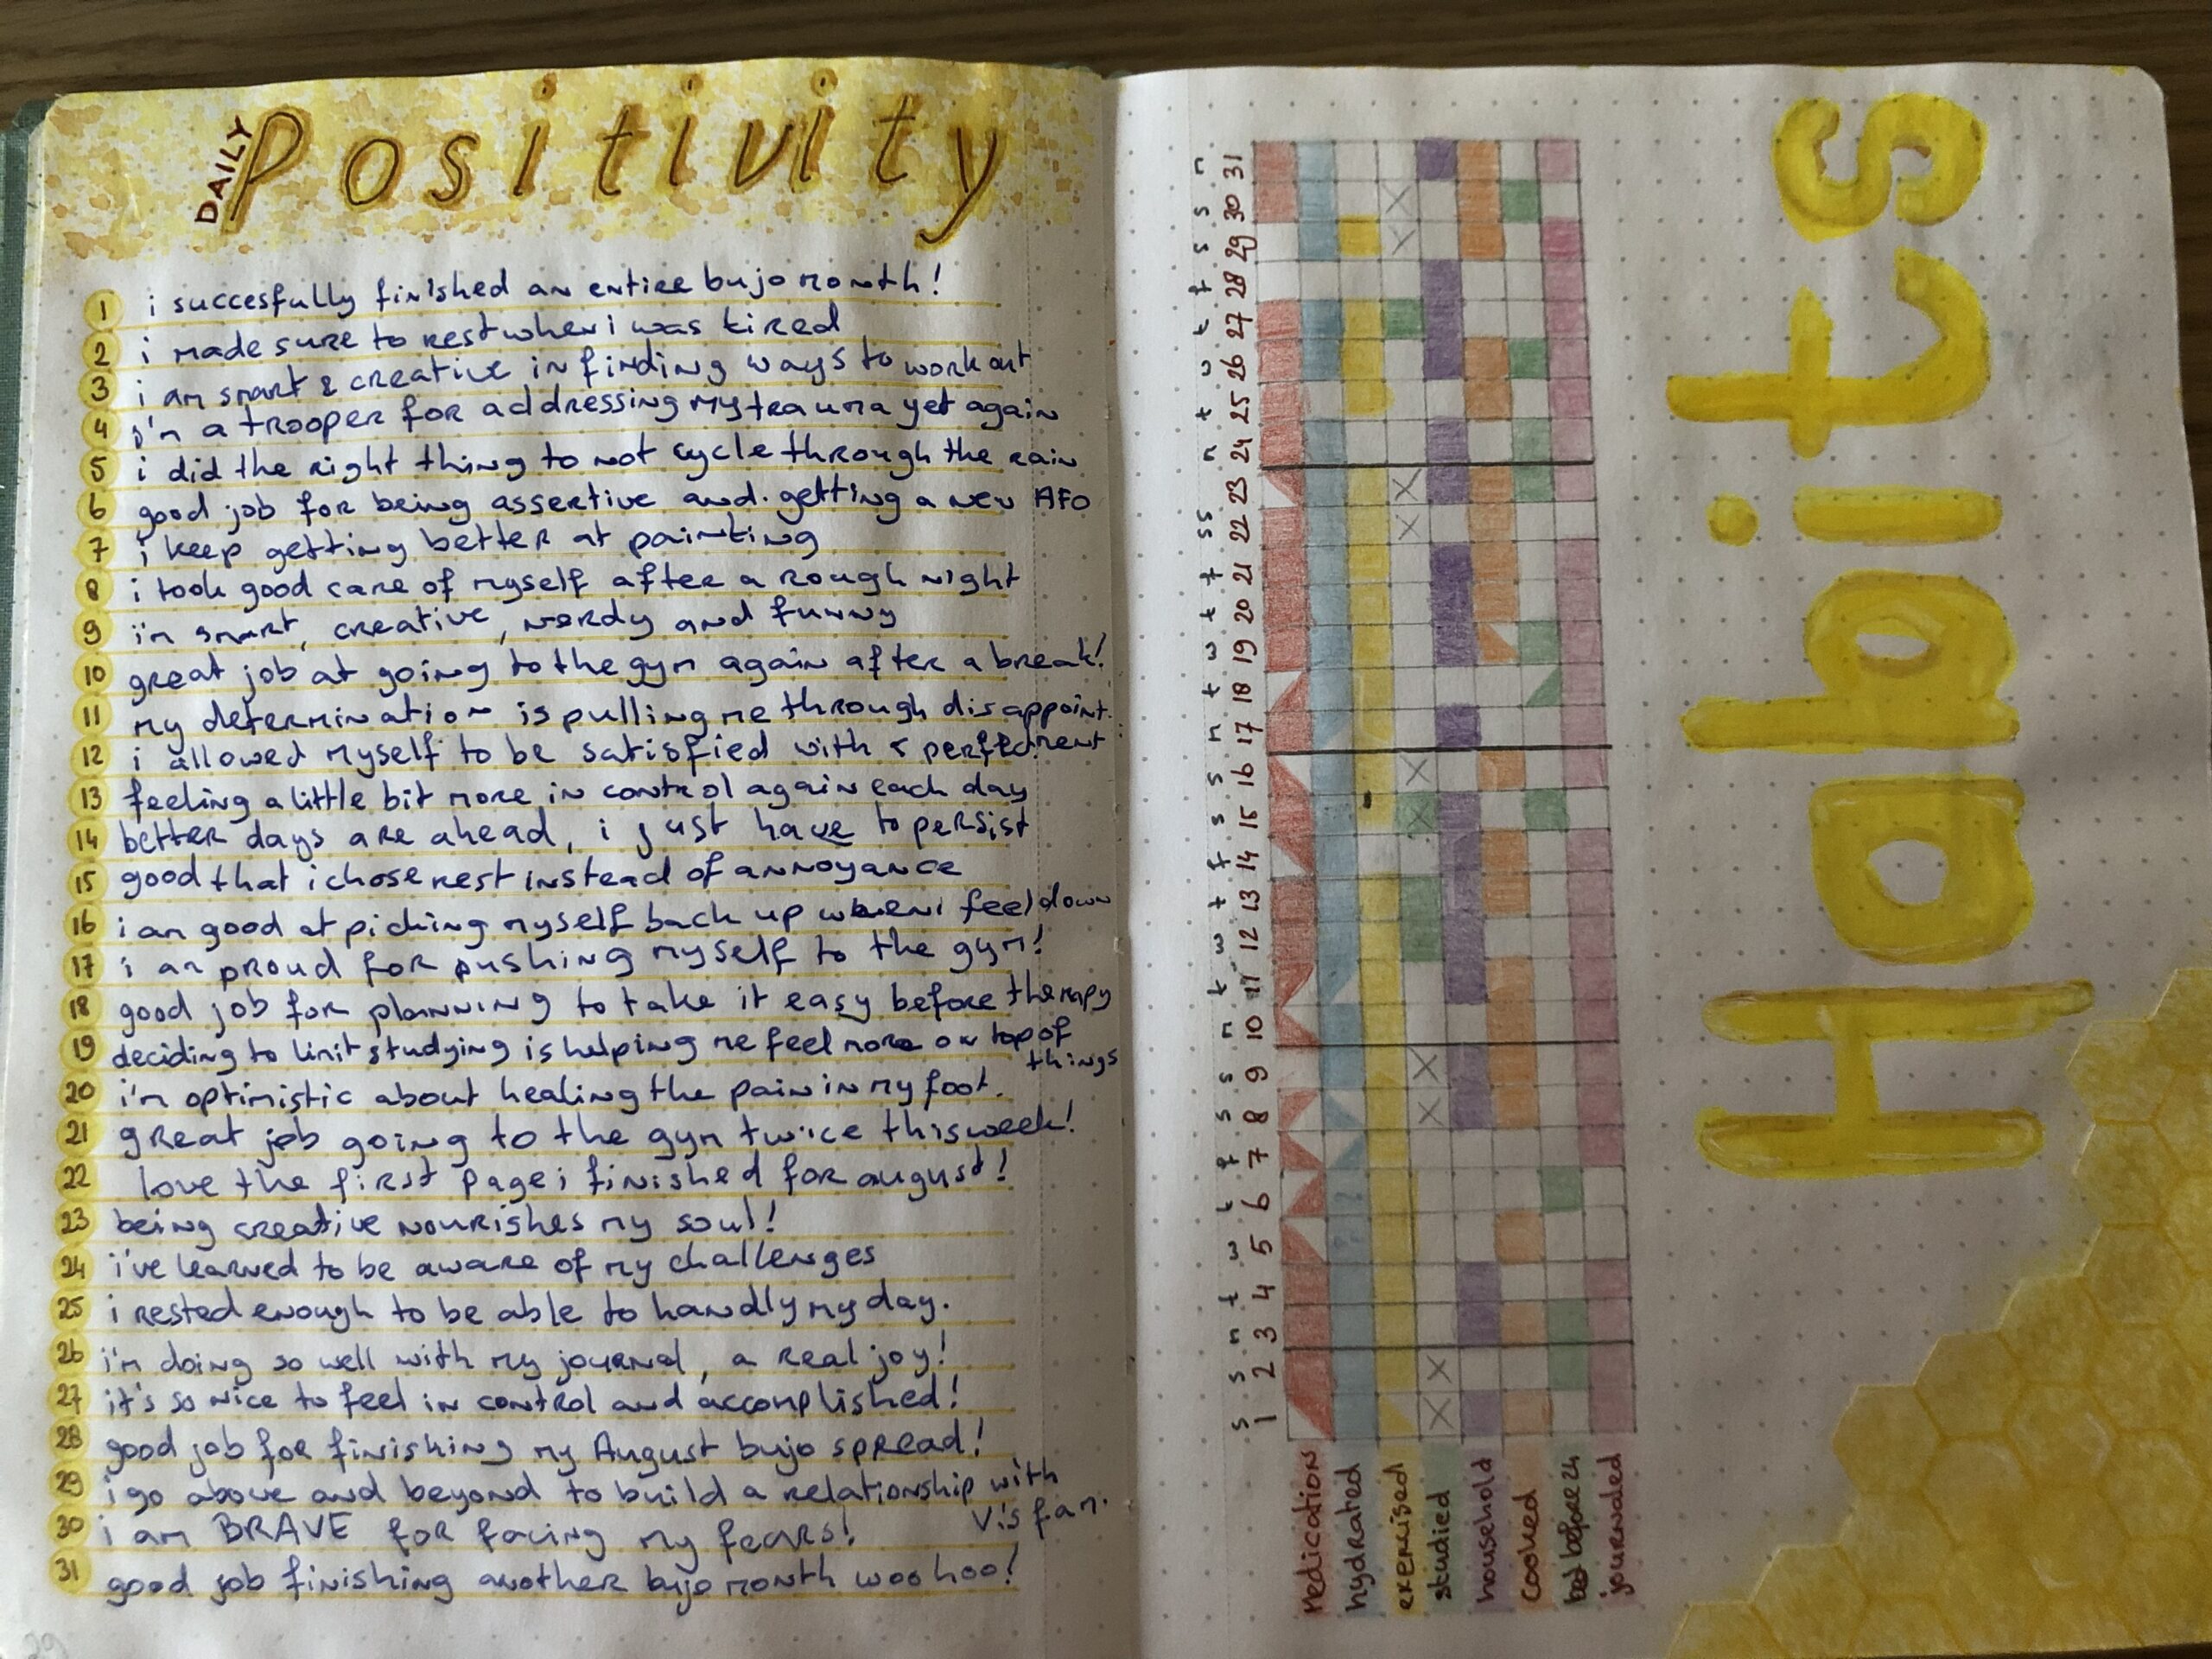 DAILY
Positivity
1 i succesfully finished an entire bujo month!
2 i made sure to rest when i was tired
3 i am smart & creative in finding ways to work out
4 i'm a trooper for addressing my trauma yet again
5 i did the right thing to not cycle through the rain
6 good job for being assertive and getting a new AFO
7 i keep getting better at painting
8 i took good care of myself after a rough night
9 i'm smart, creative, nerdy and funny
10 great job at going to the gym again after a break!
11 my determination is pulling me through disappoint.
ment
12 i allowed myself to be satisfied with < perfect
13 feeling a little bit more in control again each day
14 better days are ahead, i just have to persist
15 good that i chose rest instead of annoyance
16 i am good at picking myself back up when i feel down
17 i am proud for pushing myself to the gym!
18 good job for planning to take it easy before therapy
19 deciding to limit studying is helping me feel more on top of
things
20 i'm optimistic about healing the pain in my foot.
21 great job going to the gym twice this week!
22 love the first page i finished for august!
23 being creative nourishes my soul!
24 i've learned to be aware of my challenges
25 i rested enough to be able to handly my day.
26 i'm doing so well with my journal, a real joy!
27 it's so nice to feel in control and accomplished!
28 good job for finishing my August bujo spread!
29 i go above and beyond to build a relationship with
V's fam.
30 i am BRAVE for facing my fears!
31 good job finishing another bujo month woohoo!
29
Habits
s s m t w t f s s m t w t f s s m t w t f s s m t w t f s s m
1 2 3 4 5 6 7 8 9 10 11 12 13 14 15 16 17 18 19 20 21 22 23 24 25 26 27 28 29 30 31
medication
hydrated
exercised
studied
household
cooked
bed before 24
journaled